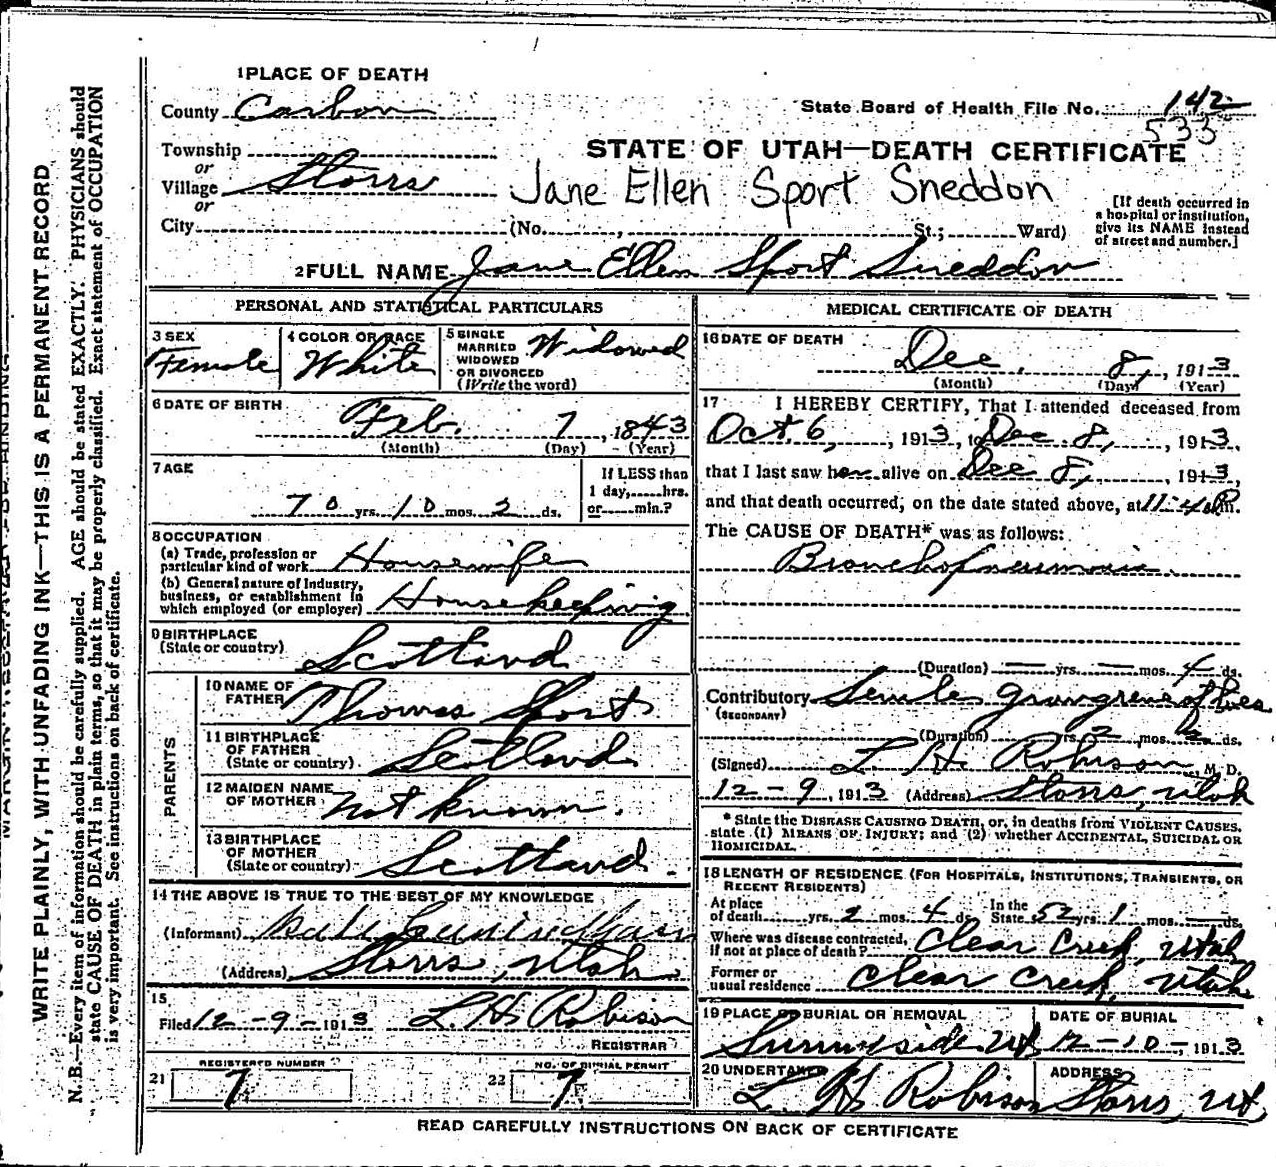 1 PLACE OF DEATH
County Carbon
State Board of Health File No. 142
533
Township
or
Village Storrs
or
City
STATE OF UTAH—DEATH CERTIFICATE
Jane Ellen Sport Sneddon
(No. , St.; Ward)
[If death occurred in
a hospital or institution,
give its NAME instead
of street and number.]
2 FULL NAME Jane Ellen Sport Sneddon
PERSONAL AND STATISTICAL PARTICULARS
3 SEX
Female
4 COLOR OR RACE
White
5 SINGLE
MARRIED
WIDOWED
OR DIVORCED
(Write the word)
Widowed
6 DATE OF BIRTH
Feb. 7, 1843
(Month) (Day) (Year)
7 AGE
70 yrs. 10 mos. 2 ds.
If LESS than
1 day, hrs.
or min.?
8 OCCUPATION
(a) Trade, profession or
particular kind of work Housewife
(b) General nature of Industry,
business, or establishment in
which employed (or employer) Housekeeping
9 BIRTHPLACE
(State or country) Scotland
PARENTS
10 NAME OF
FATHER Thomas Sport
11 BIRTHPLACE
OF FATHER
(State or country) Scotland
12 MAIDEN NAME
OF MOTHER Not known.
13 BIRTHPLACE
OF MOTHER
(State or country) Scotland.
14 THE ABOVE IS TRUE TO THE BEST OF MY KNOWLEDGE
(Informant)
(Address) Storrs, Utah
15
Filed 12-9-1913 L. H. Robison
REGISTRAR
REGISTERED NUMBER
21 7
NO. OF BURIAL PERMIT
22 7
MEDICAL CERTIFICATE OF DEATH
16 DATE OF DEATH
Dec. 8, 1913
(Month) (Day) (Year)
17 I HEREBY CERTIFY, That I attended deceased from
Oct. 6, 1913, to Dec 8, 1913,
that I last saw her alive on Dec 8, 1913,
and that death occurred, on the date stated above, at 11-40 P.m.
The CAUSE OF DEATH* was as follows:
Bronchopneumonia
(Duration) — yrs. — mos. 4 ds.
Contributory Senile Grangrene of toes
(SECONDARY)
(Duration) yrs. 2 mos. ds.
(Signed) L H Robison, M. D.
12-9, 1913 (Address) Storrs, Utah
* State the DISEASE CAUSING DEATH, or, in deaths from VIOLENT CAUSES,
state (1) MEANS OF INJURY; and (2) whether ACCIDENTAL, SUICIDAL OR
HOMICIDAL.
18 LENGTH OF RESIDENCE (FOR HOSPITALS, INSTITUTIONS, TRANSIENTS, OR
RECENT RESIDENTS)
At place
of death yrs. 2 mos. 4 ds. In the
State 52 yrs. 1 mos. — ds.
Where was disease contracted,
if not at place of death? Clear Creek, Utah
Former or
usual residence Clear Creek, Utah
19 PLACE OF BURIAL OR REMOVAL
Sunnyside Ut
DATE OF BURIAL
12-10-, 1913
20 UNDERTAKER
L H Robison
ADDRESS
Storrs, Ut.
READ CAREFULLY INSTRUCTIONS ON BACK OF CERTIFICATE
WRITE PLAINLY, WITH UNFADING INK—THIS IS A PERMANENT RECORD
N. B.—Every item of information should be carefully supplied. AGE should be stated EXACTLY. PHYSICIANS should
state CAUSE OF DEATH in plain terms, so that it may be properly classified. Exact statement of OCCUPATION
is very important. See instructions on back of certificate.